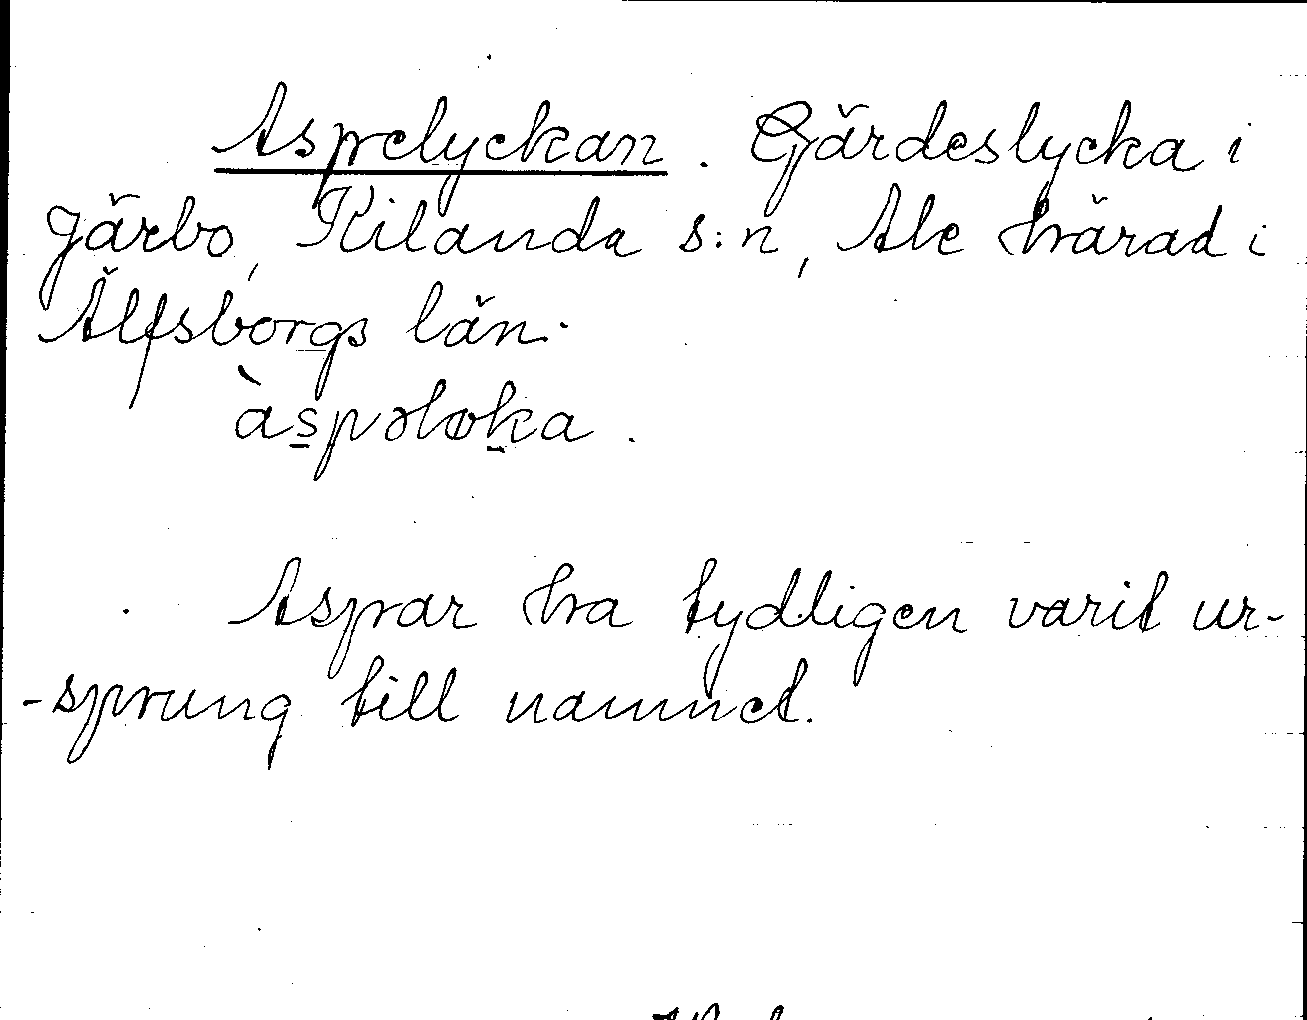 Aspelyckan. Gärdeslycka i
Järbo, Kilanda s:n, Ale härad i
Älfsborgs län.
àspəløka.
Aspar ha tydligen varit ur-
-sprung till namnet.